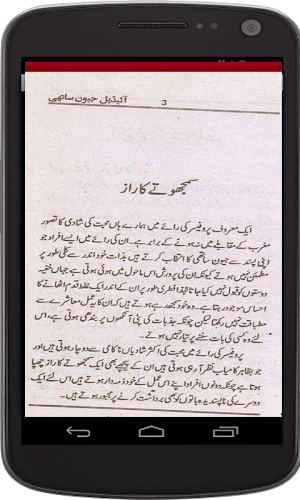 آئیڈیل جیون ساتھی 3
سمجھوتے کا راز
ایک معروف پروفیسر کی رائے میں ہمارے ہاں محبت کی شادی کا تصور
مغرب کے مقابلے میں نہ ہونے کے برابر ہے۔ ان کی رائے میں ایسے افراد جو
اپنی پسند سے جیون ساتھی کا انتخاب کرتے ہیں بذات خود اندر سے کلی طور پر
مطمئن نہیں ہوتے کیونکہ ان کی پرورش اس ماحول میں ہوئی ہوتی ہے جہاں خفیہ
دوستوں کو قبول نہیں کیا جاتا لہٰذا فطری طور پر ان کے اندر ایک غلط قدم اٹھانے کا
احساس موجود رہتا ہے۔ وہ خود سمجھ رہے ہوتے ہیں کہ ان کا یہ عمل معاشرے سے
مطابقت نہیں رکھتا لیکن چونکہ جذبات کی پٹی آنکھوں پر بندھی ہوتی ہے، اس
لئے وہ کسی کی بات سننے پر تیار نہیں ہوتے۔
پروفیسر کی رائے میں محبت کی اکثر شادیاں ناکامی سے دوچار ہوتی ہیں اور
جو بظاہر کامیاب نظر آ رہی ہوتی ہیں ان کے پیچھے بھی ایک سمجھوتے کا راز چھپا
ہوتا ہے چونکہ دونوں افراد اپنے اس عمل کے خود ذمہ دار ہوتے ہیں اس لئے ایک
دوسرے کی ناپسندیدہ باتوں کو بھی برداشت کرنے پر مجبور ہوتے ہیں۔